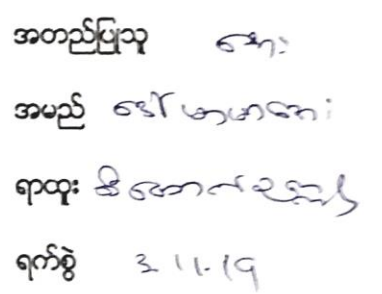 အတည်ပြုသူ အေး
အမည် ဒေါ်မာမာအေး
ရာထူး
ရက်စွဲ 3.11.19